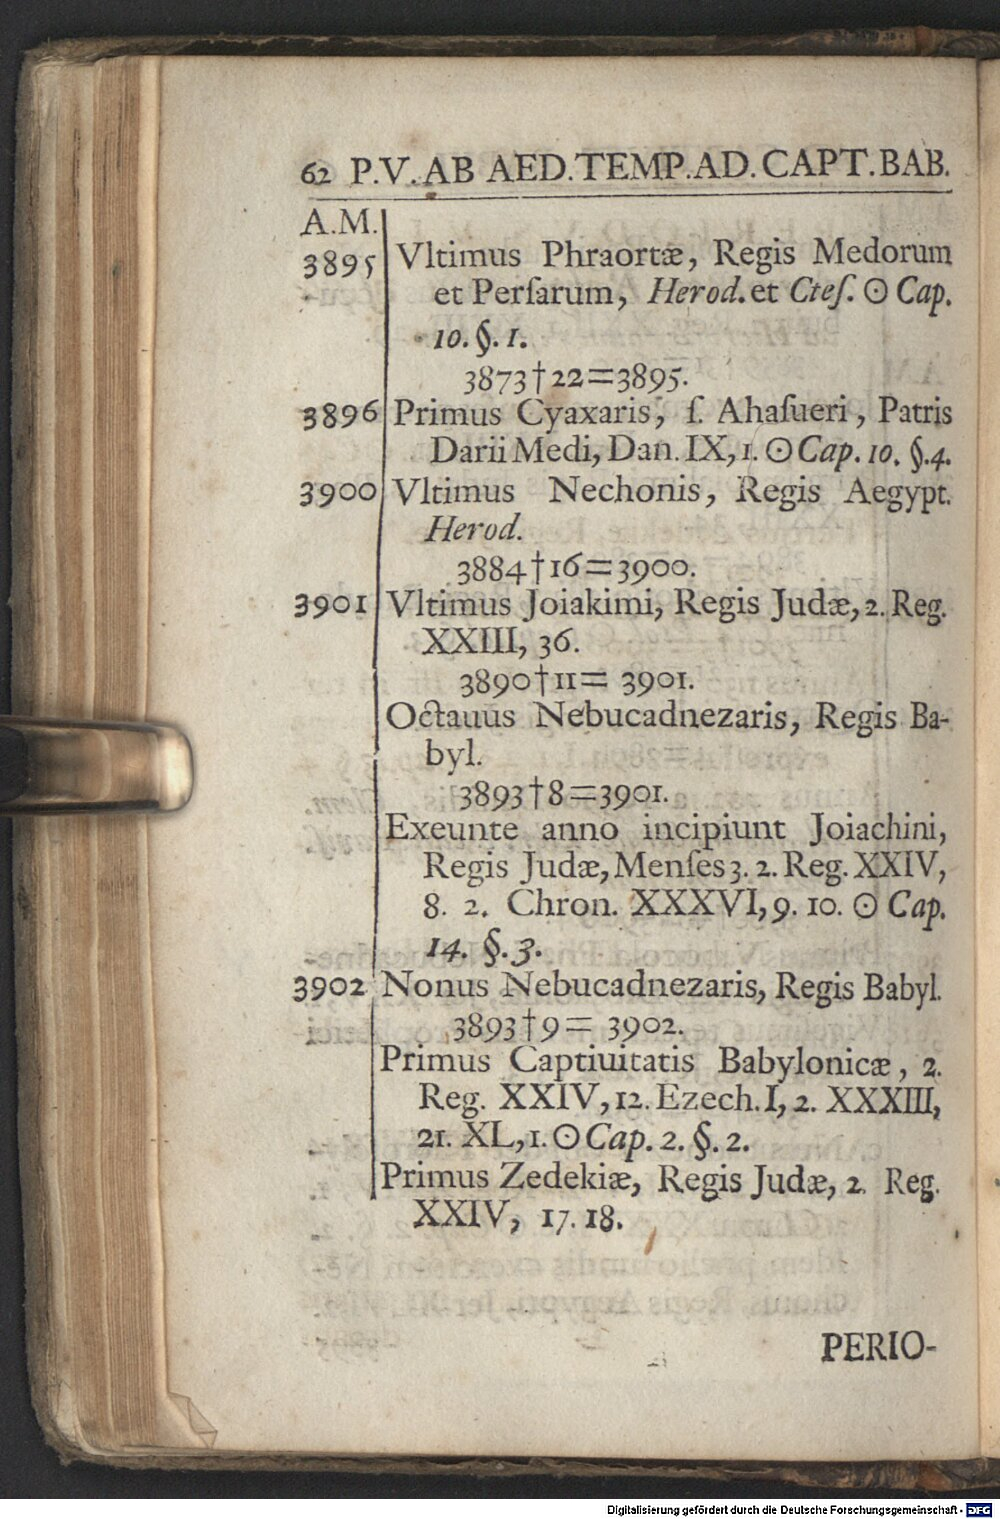 62 P.V. AB AED. TEMP. AD. CAPT. BAB.
A.M.
3895 Vltimus Phraortæ, Regis Medorum
et Perſarum, Herod. et Cteſ. ☉ Cap.
10. §. 1.
3873†22=3895.
3896 Primus Cyaxaris, ſ. Ahaſueri, Patris
Darii Medi, Dan. IX, 1. ☉ Cap. 10. §. 4.
3900 Vltimus Nechonis, Regis Aegypt.
Herod.
3884†16=3900.
3901 Vltimus Joiakimi, Regis Judæ, 2. Reg.
XXIII, 36.
3890†11= 3901.
Octauus Nebucadnezaris, Regis Ba-
byl.
3893†8=3901.
Exeunte anno incipiunt Joiachini,
Regis Judæ, Menſes 3. 2. Reg. XXIV,
8. 2. Chron. XXXVI, 9. 10. ☉ Cap.
14. §. 3.
3902 Nonus Nebucadnezaris, Regis Babyl.
3893†9= 3902.
Primus Captiuitatis Babylonicæ, 2.
Reg. XXIV, 12. Ezech. I, 2. XXXIII,
21. XL, 1. ☉ Cap. 2. §. 2.
Primus Zedekiæ, Regis Judæ, 2. Reg.
XXIV, 17. 18.
PERIO-
Digitalisierung gefördert durch die Deutsche Forschungsgemeinschaft - DFG